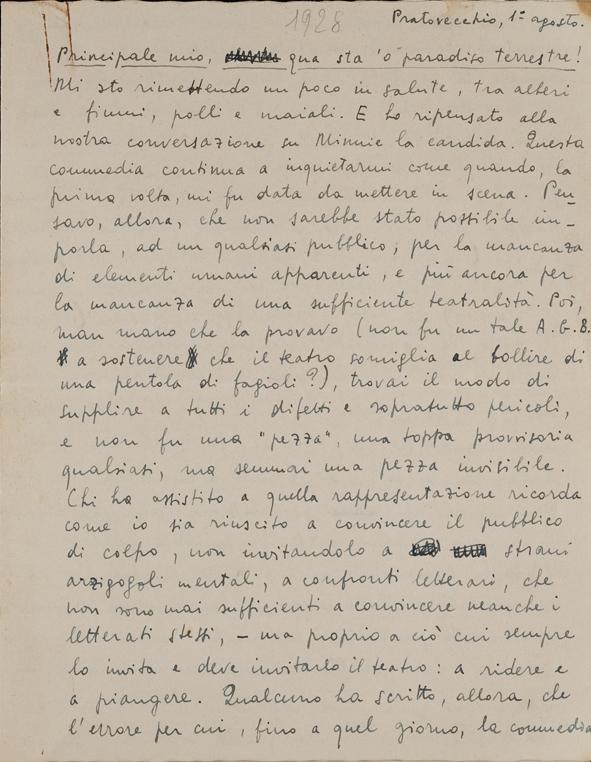 1928
Pratovecchio, 1° agosto.
Principale mio, qua sta 'o paradiso terrestre!
Mi sto rimettendo un poco in salute, tra alberi
e fiumi, polli e maiali. E ho ripensato alla
nostra conversazione su Minnie la candida. Questa
commedia continua a inquietarmi come quando, la
prima volta, mi fu data da mettere in scena. Pen-
savo, allora, che non sarebbe stato possibile im-
porla, ad un qualsiasi pubblico; per la mancanza
di elementi umani apparenti, e più ancora per
la mancanza di una sufficiente teatralità. Poi,
man mano che la provavo (non fu un tale A. G. B.
a sostenere che il teatro somiglia al bollire di
una pentola di fagioli?), trovai il modo di
supplire a tutti i difetti e sopratutto pericoli,
e non fu una "pezza", una toppa provvisoria
qualsiasi, ma semmai una pezza invisibile.
Chi ha assistito a quella rappresentazione ricorda
come io sia riuscito a convincere il pubblico
di colpo, non invitandolo a strani
arzigogoli mentali, a confronti letterari, che
non sono mai sufficienti a convincere neanche i
letterati stessi, - ma proprio a ciò cui sempre
lo invita e deve invitarlo il teatro: a ridere e
a piangere. Qualcuno ha scritto, allora, che
l'errore per cui, fino a quel giorno, la commedia